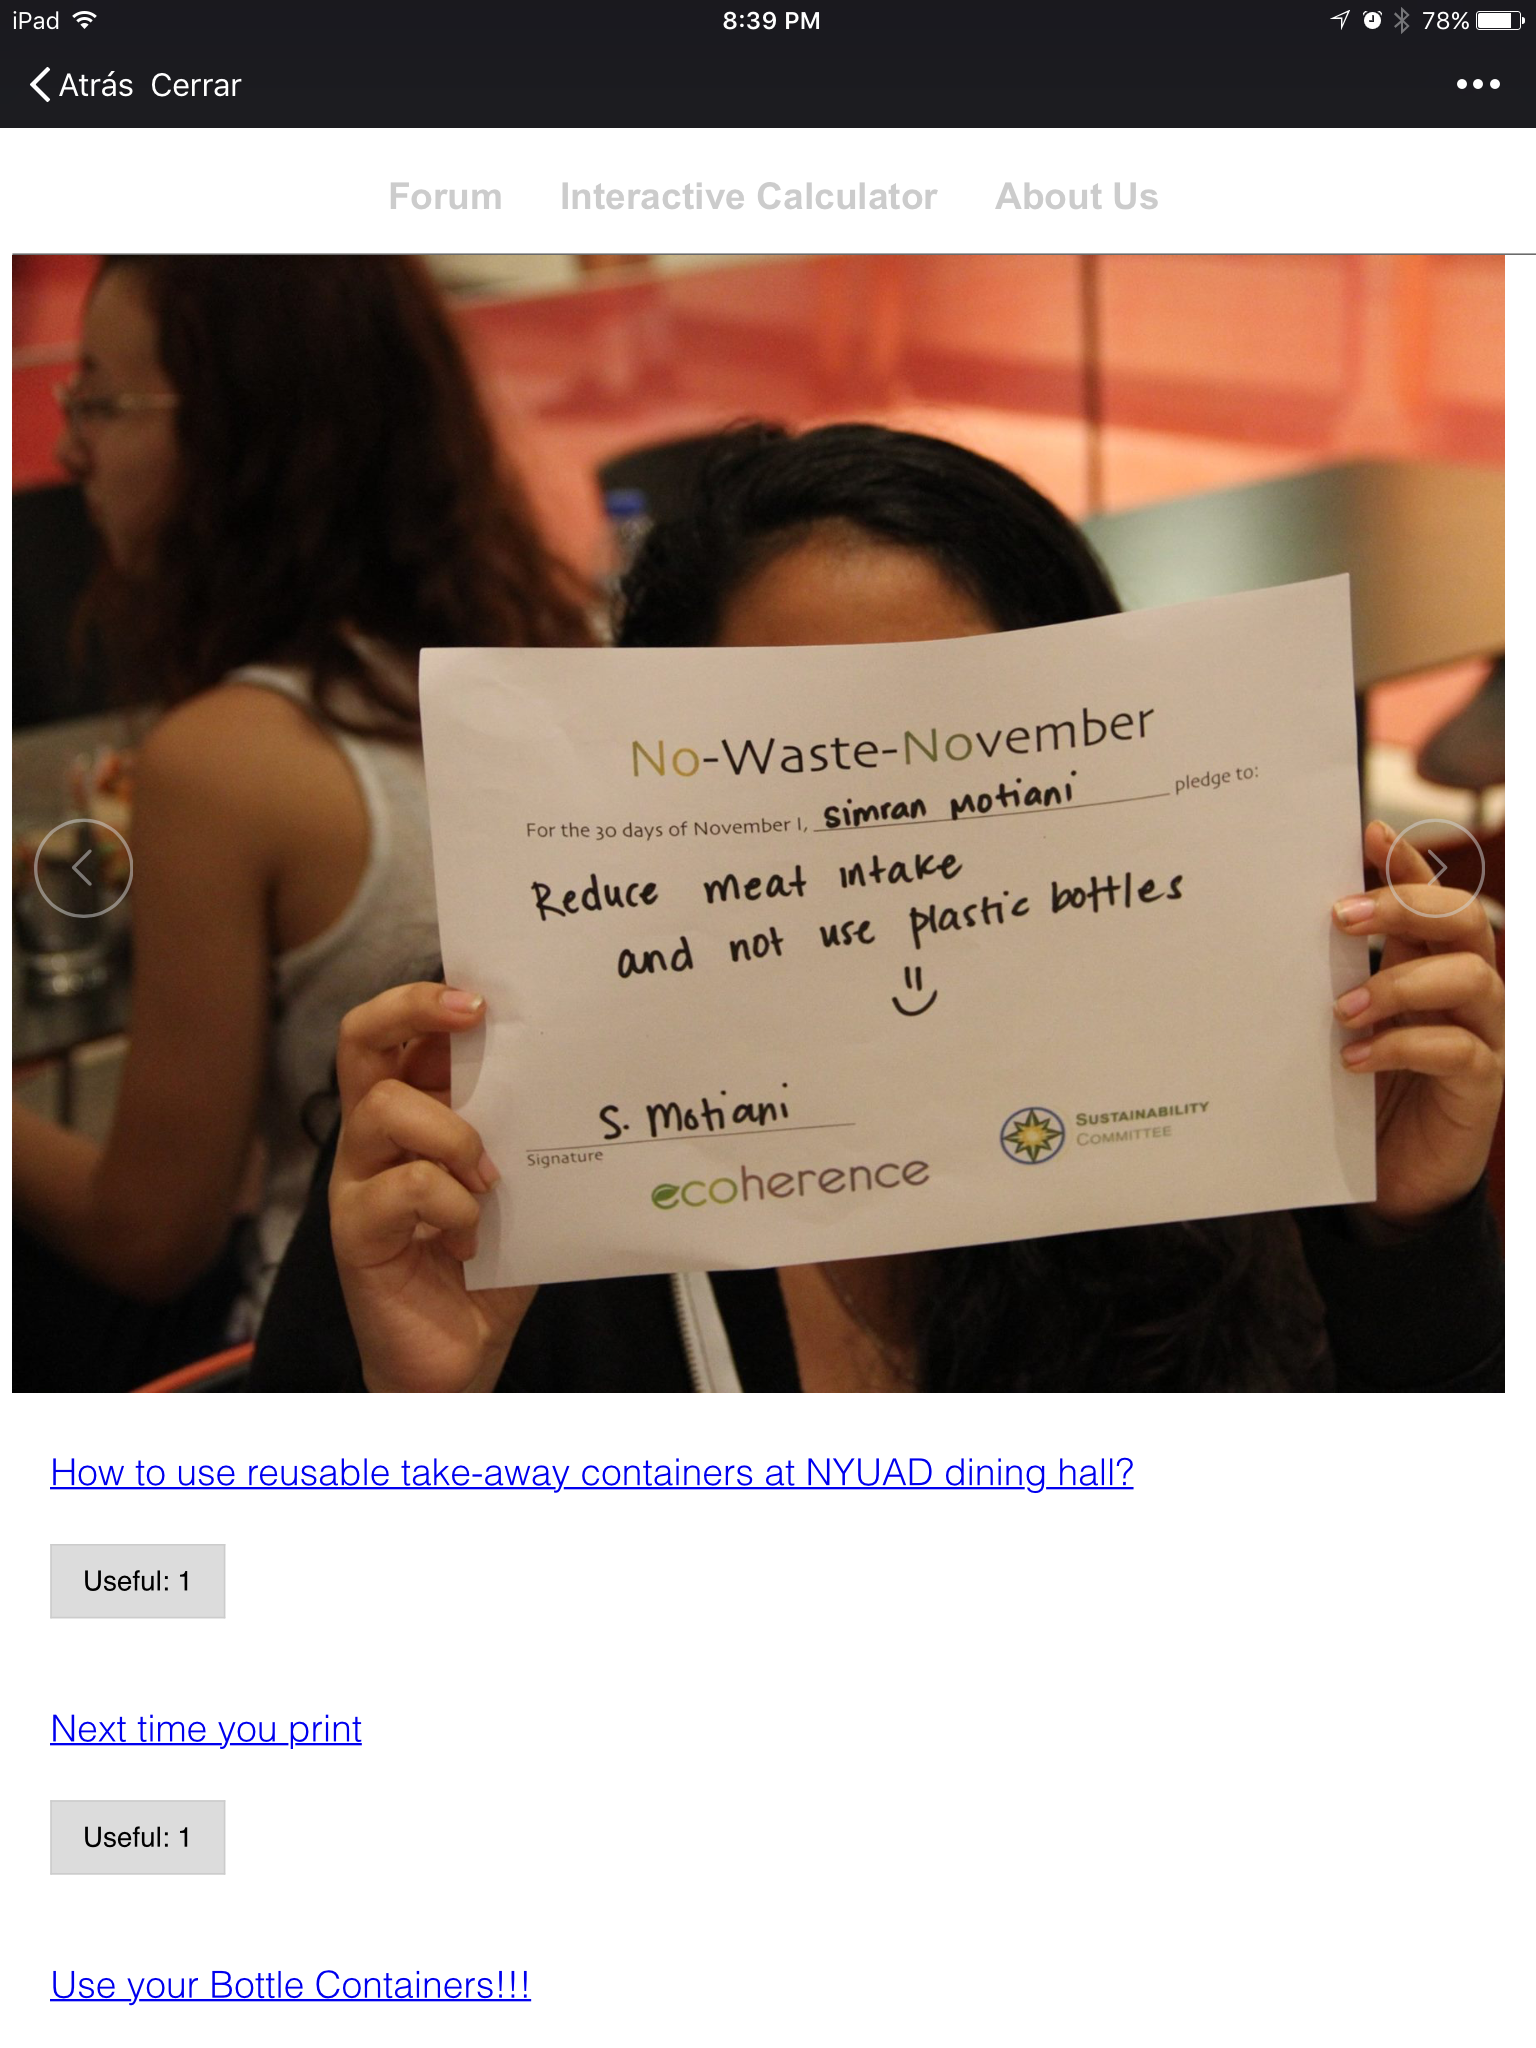 iPad 8:39 PM 78%
Atrás Cerrar
Forum Interactive Calculator About Us
No-Waste-November
For the 30 days of November I, simran Motiani pledge to:
Reduce meat intake
and not use plastic bottles
S. Motiani
Signature
SUSTAINABILITY
COMMITTEE
ecoherence
How to use reusable take-away containers at NYUAD dining hall?
Useful: 1
Next time you print
Useful: 1
Use your Bottle Containers!!!